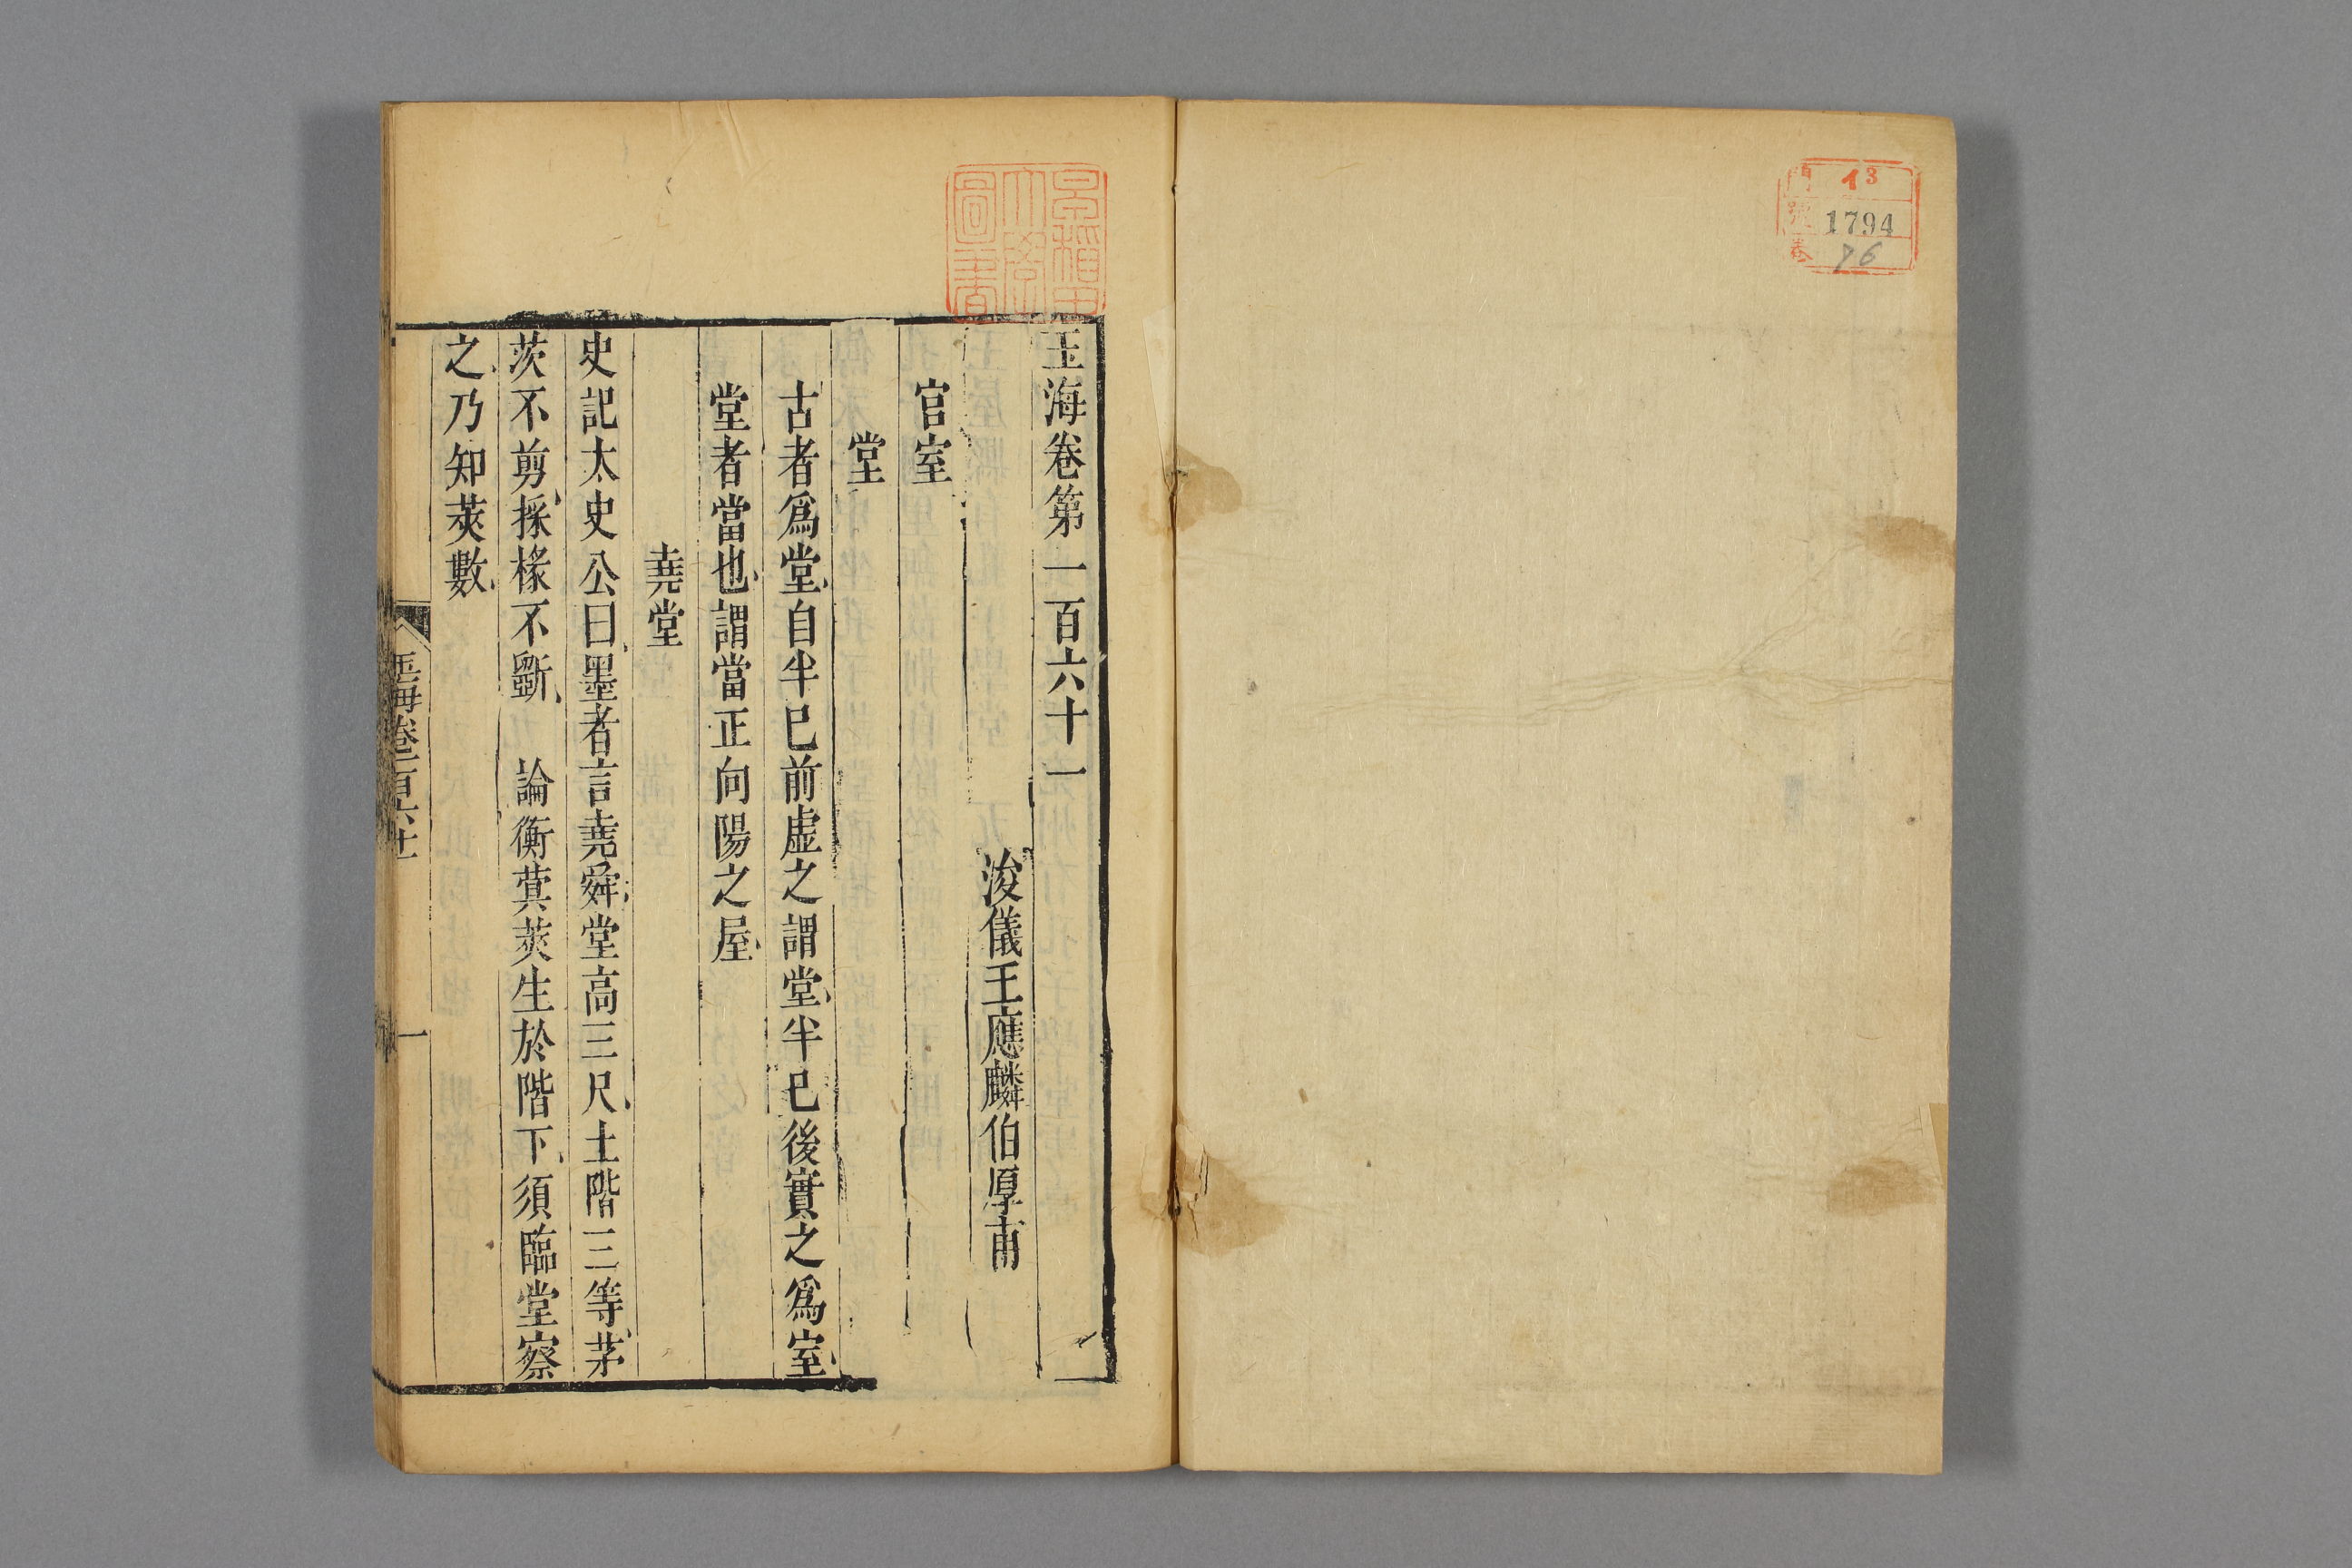 門 13
號 1794
卷 76
早稲田
大學
圖書
玉海卷第一百六十一
浚儀王應麟伯厚甫
官室
堂
古者爲堂自半已前虛之謂堂半已後實之爲室
堂者當也謂當正向陽之屋
堯堂
史記太史公曰墨者言堯舜堂高三尺土階三等茅
茨不剪採椽不斲　論衡蓂莢生於階下須臨堂察
之乃知莢數
玉海卷一百六十一
一